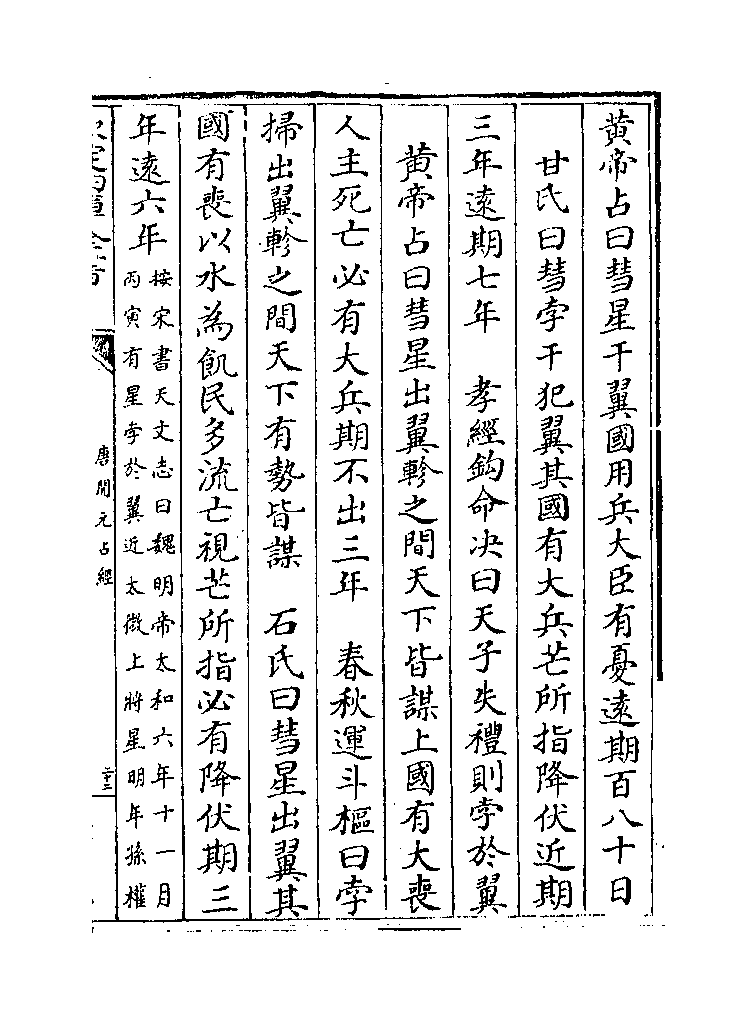 黄帝占曰彗星干翼國用兵大臣有憂遠期百八十日
甘氏曰彗孛干犯翼其國有大兵芒所指降伏近期
三年遠期七年　孝經鈎命决曰天子失禮則孛於翼
黄帝占曰彗星出翼軫之間天下皆謀上國有大喪
人主死亡必有大兵期不出三年　春秋運斗樞曰孛
掃出翼軫之間天下有勢皆謀　石氏曰彗星出翼其
國有喪以水為飢民多流亡視芒所指必有降伏期三
年遠六年按宋書天文志曰魏明帝太和六年十一月
丙寅有星孛於翼近太微上將星明年孫權
欽定四庫全書
唐開元占經
二十三